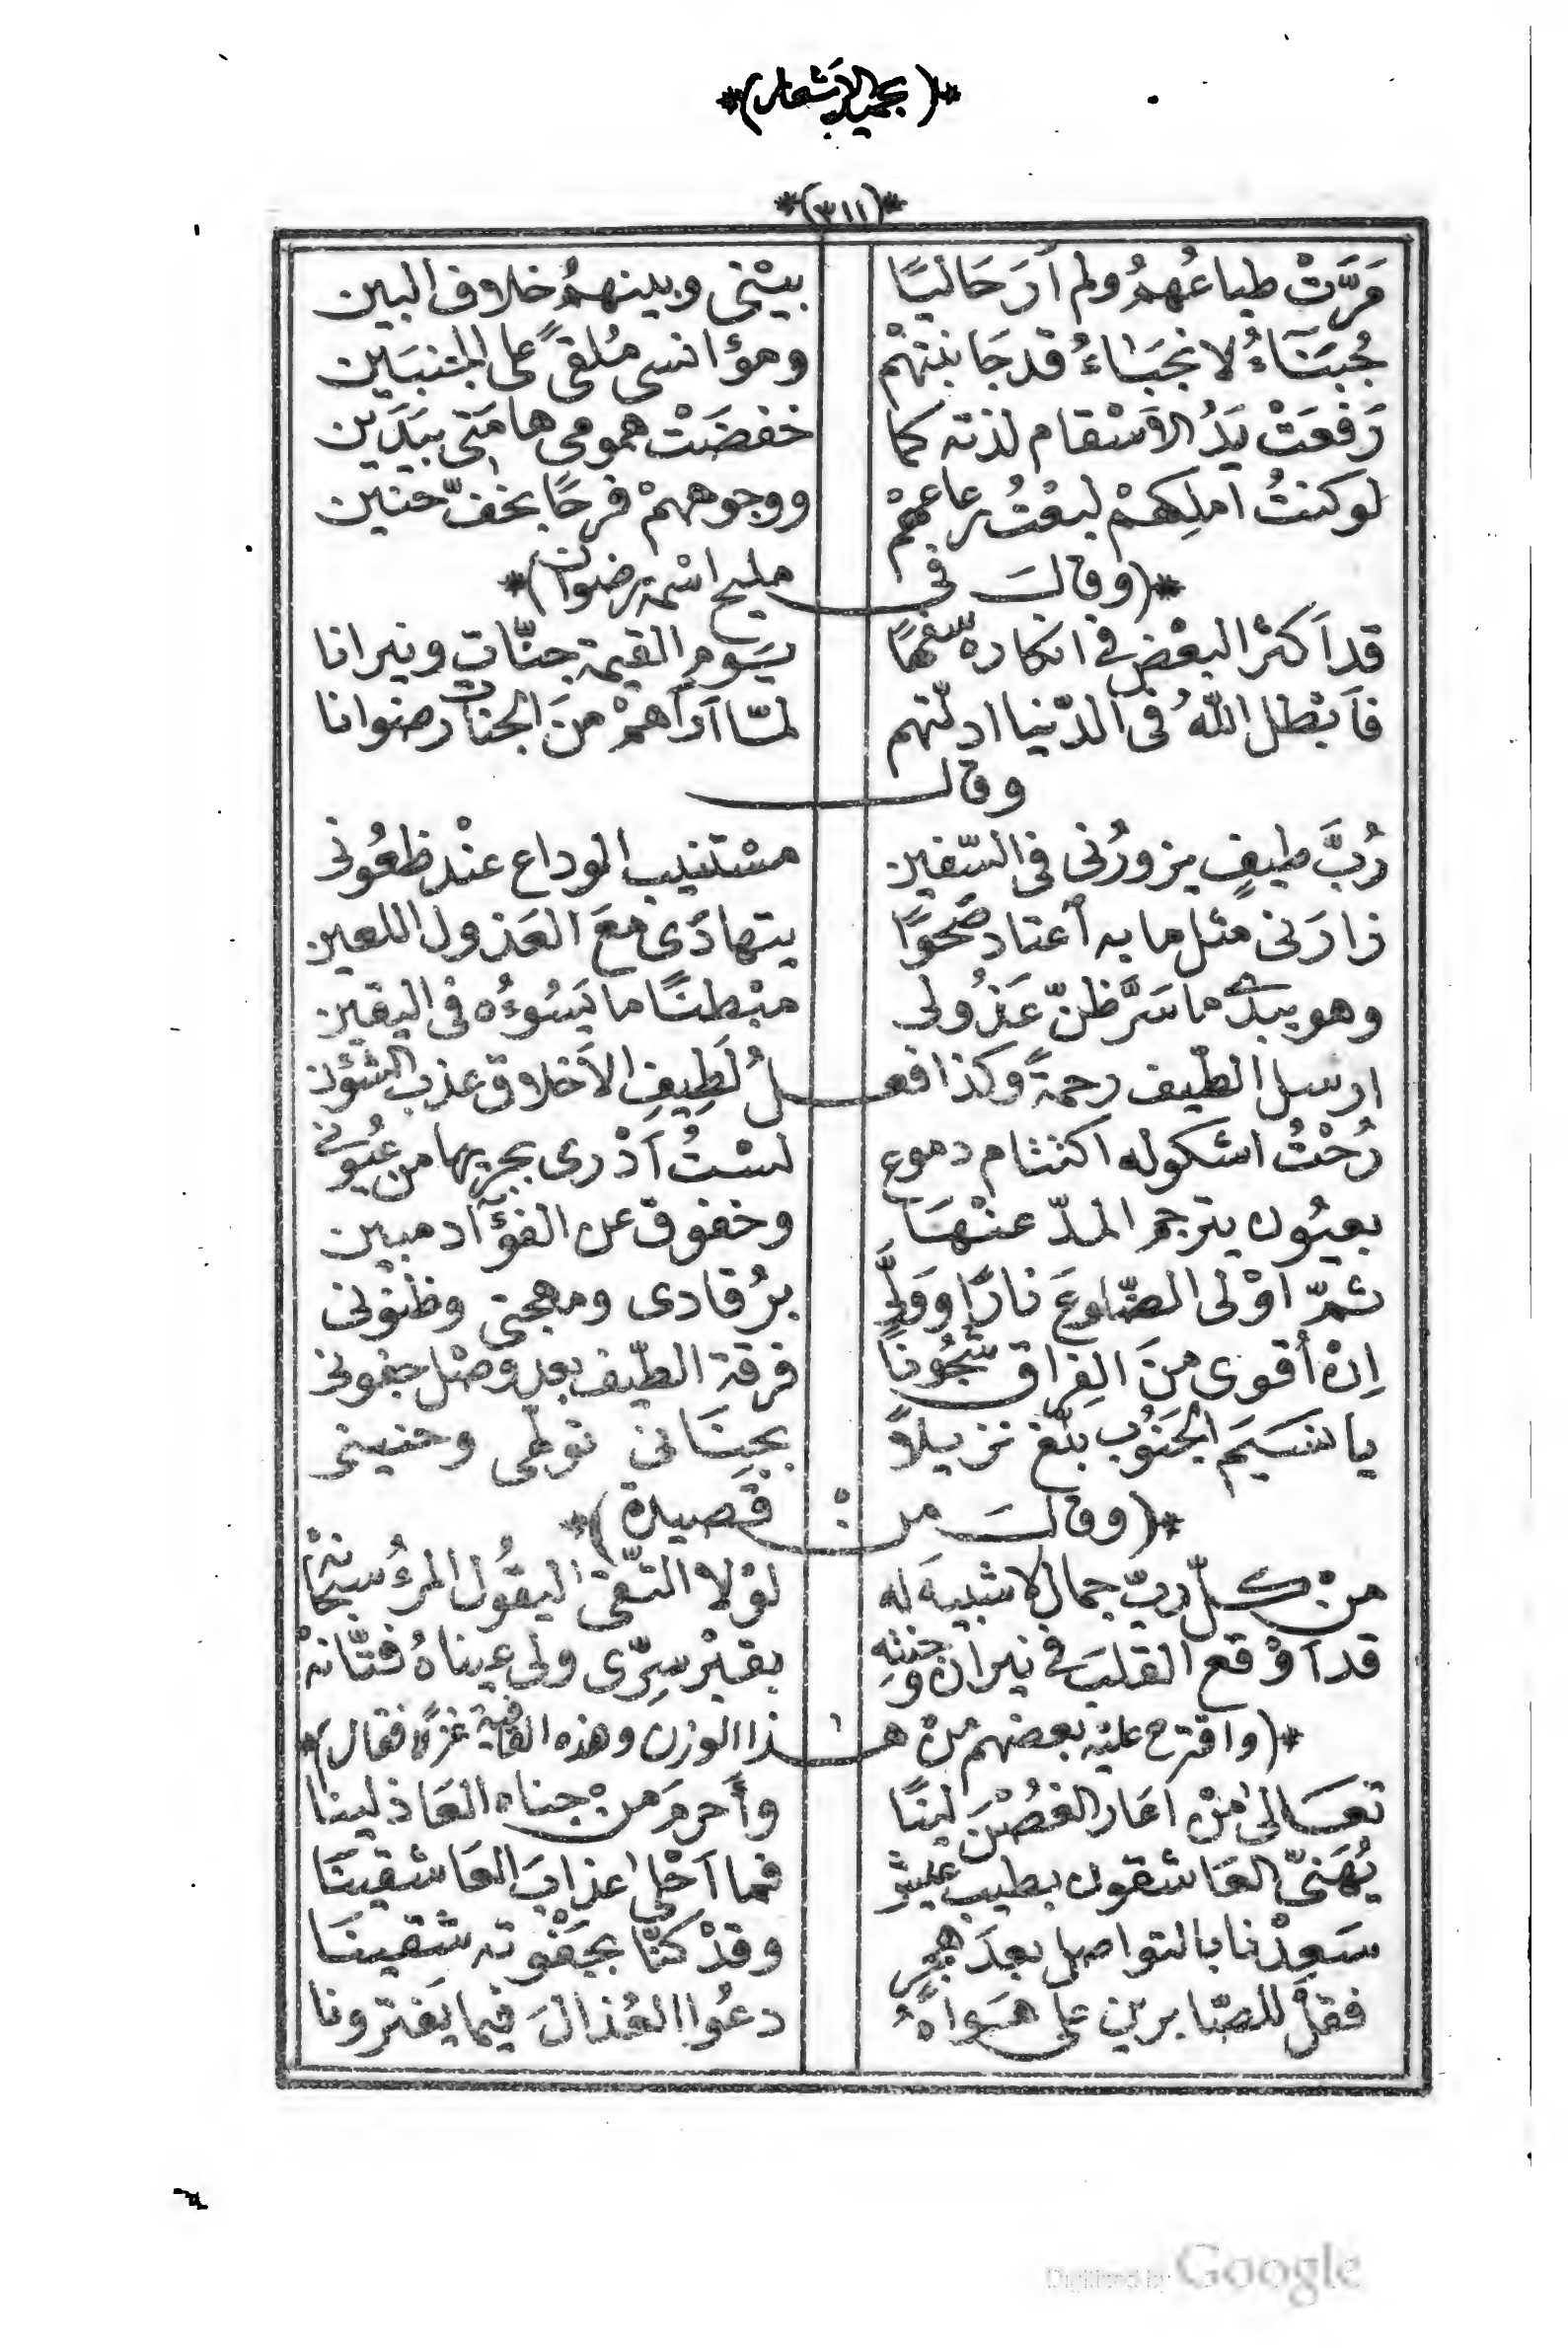 *( بجميل الاشعار )*
*(٣١١)*
مَرَّتْ طباعُهمُ ولم أرَ حَاليًا بيْنى وبينهمُ خلاف البين
جُبَنَآءُ لا نجَبَاءُ قد جَانبتهْم وهو انسى مُلقىً على الجنبَين
رَفعَتْ يَدُ الاَسْقام لذته كما خفضَتْ همومى هامَتى بيَدَين
لو كنتُ املِكهمْ لبعْتُ رعاعهمْ ووجوههمْ فرحًا بخفّ حنين
*(وقال فى مليح اسْمه رضوان)*
قد اَكثر البعْض فى انكاره سفهًا يَوم القيمة جنّاتٍ ونيرانا
فاَبْطل اللهُ فى الدّنيا ادلّتهم لمّا اَرَاهمْ منَ الجنات رضوانا
وقال
رُبَّ طيفٍ يزورُنى فى السّفين مسْتنيب الوداع عنْد ظعُونى
زارَنى مثل ما به أعتاد صَحوًا يتهادَى معَ العَذول اللعين
وهو يبدى ما سَرَّ ظنّ عَذُولى مبْطنًا ما يَسُوءُه فى اليقين
ارسل الطّيف رحمةً وكذا فعلُ لَطِيفِ الاَخلاق عذب الشئون
رُحْتُ اشكو له اكتتام دموع لسْتُ اَدْرى بجريها من عيُونى
بعيُون يترجم المدّ عنْهَا وخفوق عن الفؤآد مبين
ثمّ اوْلى الضّلوعَ نارًا ووَلَّى برُقادى ومهجتى وظنونى
اِنْ أقوى منَ الفِراق شجُونًا فرقة الطّيف بعد وصْل جفونى
يا نسَيَم الجَنُوب بلّغ نزيلاً بجِنَانى توطّى وحنينى
*(وقال منْ قصيدة)*
منْ كلّ ربّ جمال لا شبيهَ له لوْلا التّقى ليقُول المرءُ سبْحَانهْ
قد اَوْقع القلبَ فى نيران وجنته بقبْر سِرِّى ولى عيناهُ فتّانهْ
*(واقترح عليْه بعضهم منْ هذا الوزن وهذه القافية غزلاً فقال)*
تعَالىٰ منْ اعَار الغصْنَ لينًا وأحرمَ منْ جناه العَاذلينا
يُهَنىّ العَاشقون بطيب عيش فما اَحْلى عذابَ العَاشقينَا
سَعِدْنا بالتواصل بعدَ هجْر وقدْ كنّا بجَفْوته شقينَا
فقلْ للصّابرين على هَواهُ دعُوا العُذالَ فيما يَفترونا
Digitized by Google